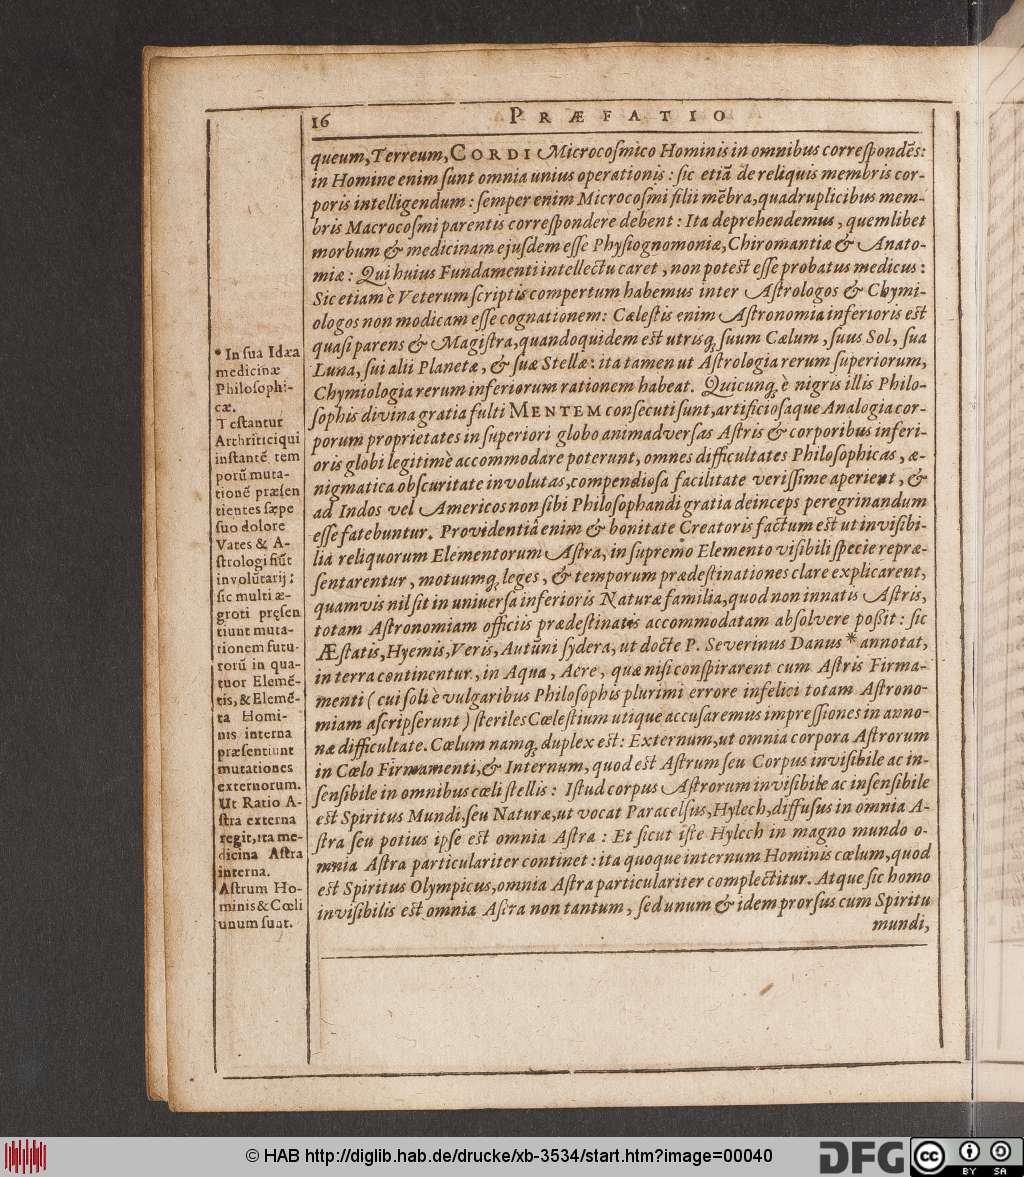 16
PRÆFATIO
queum, Terreum, CORDI Microcoſmico Hominis in omnibus correſpondẽs:
in Homine enim ſunt omnia unius operationis : ſic etiã de reliquis membris cor-
poris intelligendum : ſemper enim Microcoſmi filii mẽbra, quadruplicibus mem-
bris Macrocoſmi parentis correſpondere debent : Ita deprehendemus, quemlibet
morbum & medicinam ejuſdem eſſe Phyſiognomoniæ, Chiromantiæ & Anato-
miæ : Qui huius Fundamenti intellectu caret, non poteſt eſſe probatus medicus :
Sic etiam è Veterum ſcriptis compertum habemus inter Aſtrologos & Chymi-
ologos non modicam eſſe cognationem: Cæleſtis enim Aſtronomia inferioris eſt
quaſi parens & Magiſtra, quandoquidem eſt utrisq; ſuum Cælum, ſuus Sol, ſua
Luna, ſui alii Planetæ, & ſuæ Stellæ: ita tamen ut Aſtrologia rerum ſuperiorum,
Chymiologia rerum inferiorum rationem habeat. Quicunq; è nigris illis Philo-
ſophis divina gratia fulti MENTEM conſecuti ſunt, artificioſaque Analogia cor-
porum proprietates in ſuperiori globo animadverſas Aſtris & corporibus inferi-
oris globi legitimè accommodare poterunt, omnes difficultates Philoſophicas, æ-
nigmatica obſcuritate involutas, compendioſa facilitate veriſſime aperient, &
ad Indos vel Americos non ſibi Philoſophandi gratia deinceps peregrinandum
eſſe fatebuntur. Providentiâ enim & bonitate Creatoris factum eſt ut inviſibi-
lia reliquorum Elementorum Aſtra, in ſupremo Elemento viſibili ſpecie repræ-
ſentarentur, motuumq; leges, & temporum prædeſtinationes clare explicarent,
quamvis nil ſit in univerſa inferioris Naturæ familia, quod non innatis Aſtris,
totam Aſtronomiam officiis prædeſtinatis accommodatam abſolvere poßit : ſic
Æſtatis, Hyemis, Veris, Autũni ſydera, ut docte P. Severinus Danus * annotat,
in terra continentur, in Aqua, Aëre, quæ niſi conſpirarent cum Aſtris Firma-
menti ( cui ſoli è vulgaribus Philoſophis plurimi errore infelici totam Aſtrono-
miam aſcripſerunt ) ſteriles Cœleſtium utique accuſaremus impreſſiones in anno-
næ difficultate. Cœlum namq; duplex eſt : Externum, ut omnia corpora Aſtrorum
in Cœlo Firmamenti, & Internum, quod eſt Aſtrum ſeu Corpus inviſibile ac in-
ſenſibile in omnibus cœli ſtellis : Iſtud corpus Aſtrorum inviſibile ac inſenſibile
eſt Spiritus Mundi, ſeu Naturæ, ut vocat Paracelſus, Hylech, diffuſus in omnia A-
ſtra ſeu potius ipſe eſt omnia Aſtra : Et ſicut iſte Hylech in magno mundo o-
mnia Aſtra particulariter continet : ita quoque internum Hominis cœlum, quod
eſt Spiritus Olympicus, omnia Aſtra particulariter complectitur. Atque ſic homo
inviſibilis eſt omnia Aſtra non tantum, ſed unum & idem prorſus cum Spiritu
mundi,
* In ſua Idæa
medicinæ
Philoſophi-
cæ.
Teſtantur
Arthritici qui
inſtantẽ tem
porũ muta-
tionẽ præſen
tientes ſæpe
ſuo dolore
Vates & A-
ſtrologi fiũt
involũtarij :
ſic multi æ-
groti pręſen
tiunt muta-
tionem futu-
torũ in qua-
tuor Elemẽ-
tis, & Elemẽ-
ta Homi-
nis interna
præſentiunt
mutationes
externorum.
Ut Ratio A-
ſtra externa
regit, ita me-
dicina Aſtra
interna.
Aſtrum Ho-
minis & Cœli
unum ſunt.
© HAB http://diglib.hab.de/drucke/xb-3534/start.htm?image=00040
DFG
cc BY SA